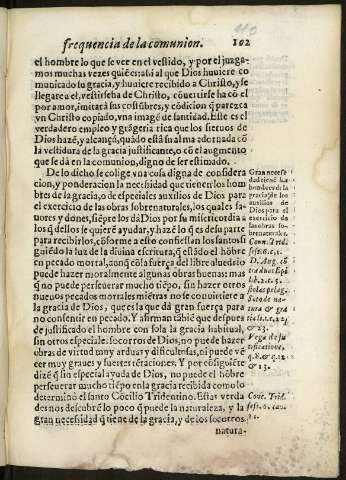 frequencia de la comunion. 102
el hombre lo que se ver en el vestido, y por el juzga-
mos muchas vezes quiẽ es: asi al que Dios huuiere co
municado su gracia, y huuiere recibido a Christo, y se
llegare a el, vestirseha de Christo, cõuertirse ha cõ el
por amor, imitará sus costũbres, y cõdicion q̃ parezca
vn Christo copiado, vna imagẽ de santidad. Este es el
verdadero empleo y grãgeria rica que los sieruos de
Dios hazẽ, y alcançã, quãdo està su alma adornada cõ
la vestidura de la gracia justificante, o cõ el augmento
que se dà en la comunion, digno de ser estimado.
De lo dicho se colige vna cosa digna de considera
cion, y ponderacion la necesidad que tienen los hom
bres de la gracia, o de especiales auxilios de Dios para
el exercicio de las obras sobrenaturales, los quales fa-
uores y dones, siẽpre los dà Dios por su misericordia a
los q̃ dellos se quierẽ ayudar, y hazẽ lo q̃ es de su parte
para recibirlos, cõforme a esto confiessan los santos
guiãdo la luz de la diuina escritura, q̃ estãdo el hõbre
en pecado mortal, aunq̃ cõ la fuerça del libre aluedrio
puede hazer moralmente algunas obras buenas: mas
q̃ no puede perseuerar mucho tiẽpo, sin hazer otros
nueuos pecados mortales miẽtras no se conuirtiere a
la gracia de Dios, que es la que dà gran fuerça para
no consentir en pecado. Y afirman tãbiẽ que despues
de justificado el hombre con sola la gracia habitual,
sin otros especiales socorros de Dios, no puede hazer
obras de virtud muy arduas y dificultosas, ni puede vẽ
cer muy graues y fuertes tẽtaciones. Y por cõsiguiẽte
dizẽ q̃ sin especial ayuda de Dios, no puede el hõbre
perseuerar mucho tiẽpo en la gracia recibida como lo
determinò el santo Cõcilio Tridentino. Esta verdad
nos descubre lo poco q̃ puede la naturaleza, y la
gran necessidad q̃ tiene de la gracia, y de los socorros
natura-
Gran necesi
dad tienẽ los
hombres de la
gracia, y de los
auxilios de
Dios para el
exercicio de
las obras so-
brenaturales.
Conc. Trid.
sess. 6. c. 1.
D. Aug. cõ